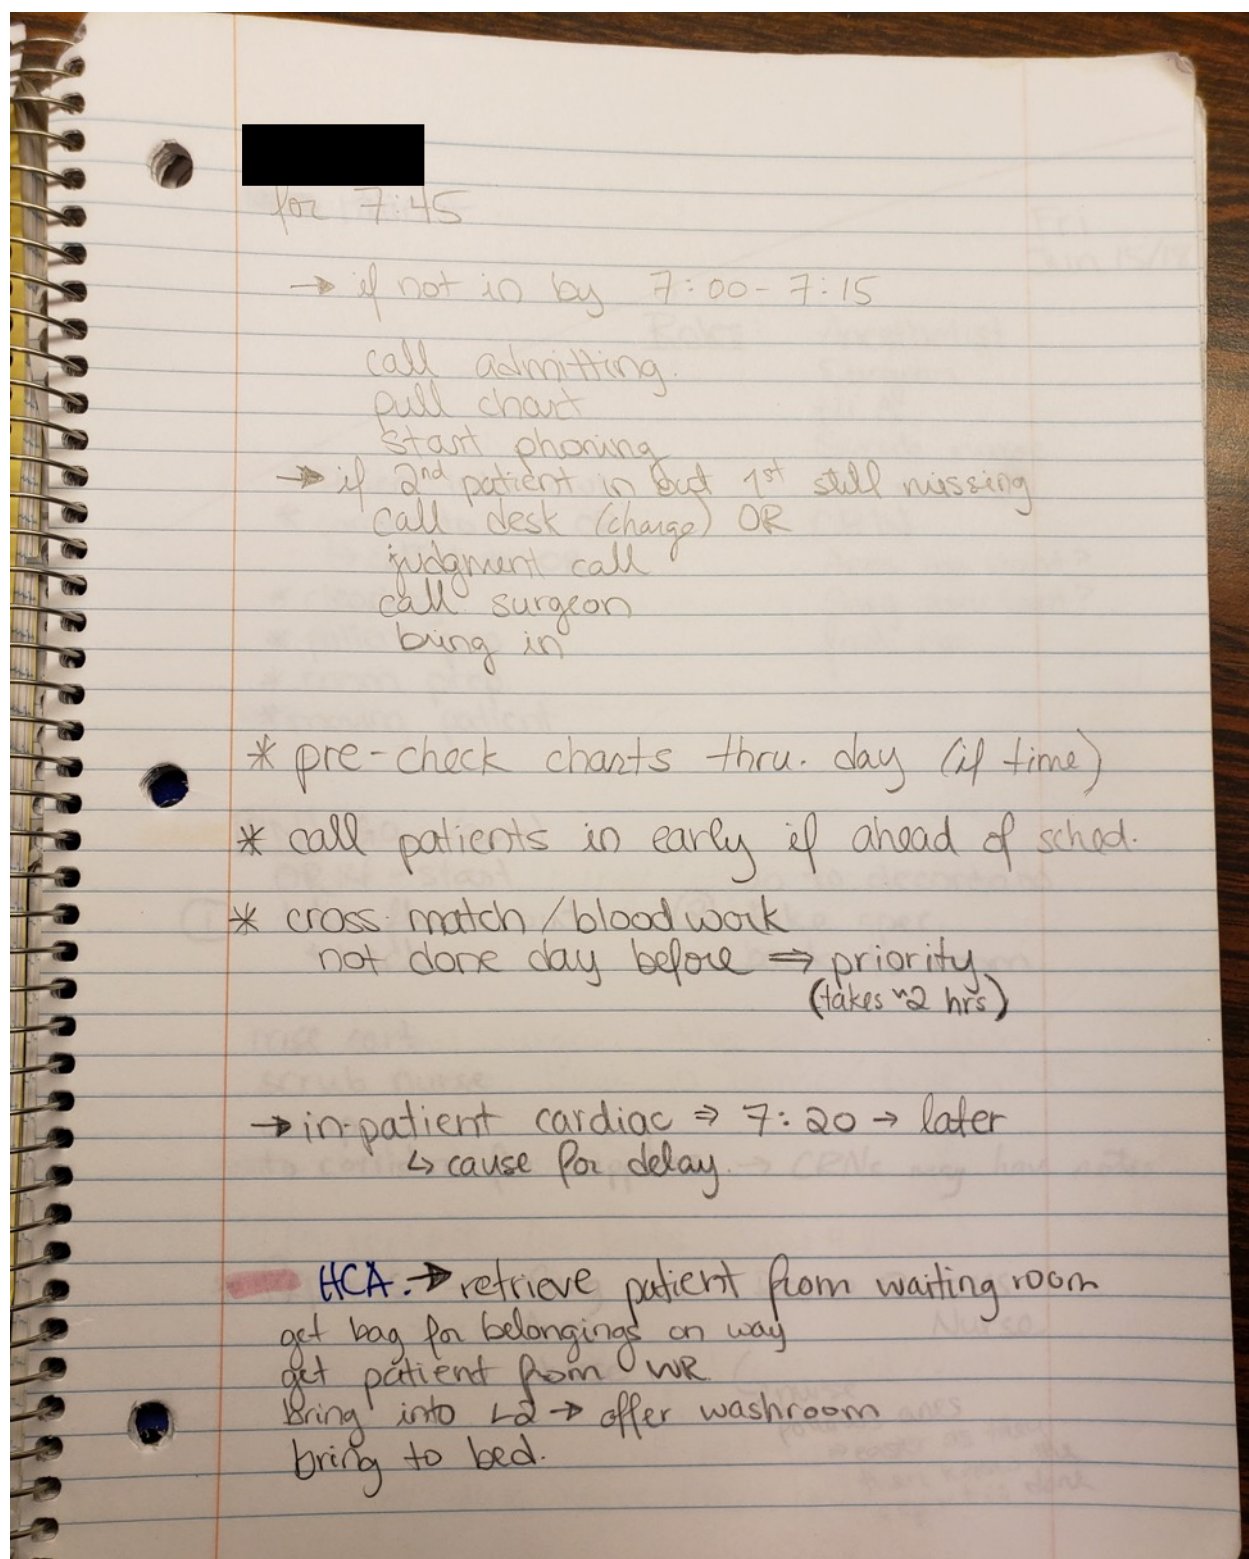 for 7:45
→ if not in by 7:00 - 7:15
call admitting.
pull chart
start phoning
→ if 2nd patient in but 1st still missing
call desk (charge) OR
judgment call
call surgeon
bring in
* pre-check charts thru. day (if time)
* call patients in early if ahead of sched.
* cross match / bloodwork
not done day before ⇒ priority
(takes ~2 hrs)
→ in-patient cardiac ⇒ 7:20 → later
↳ cause for delay.
HCA. → retrieve patient from waiting room
get bag for belongings on way
get patient from WR
bring into L2 → offer washroom
bring to bed.